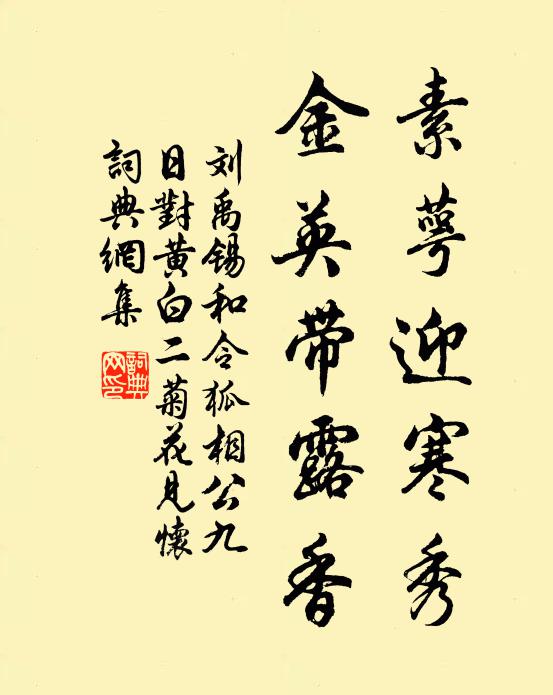 素萼迎寒秀
金英带露香
刘禹锡和令狐相公九
日對黄白二菊花見懷
詞典網集
詞典網印